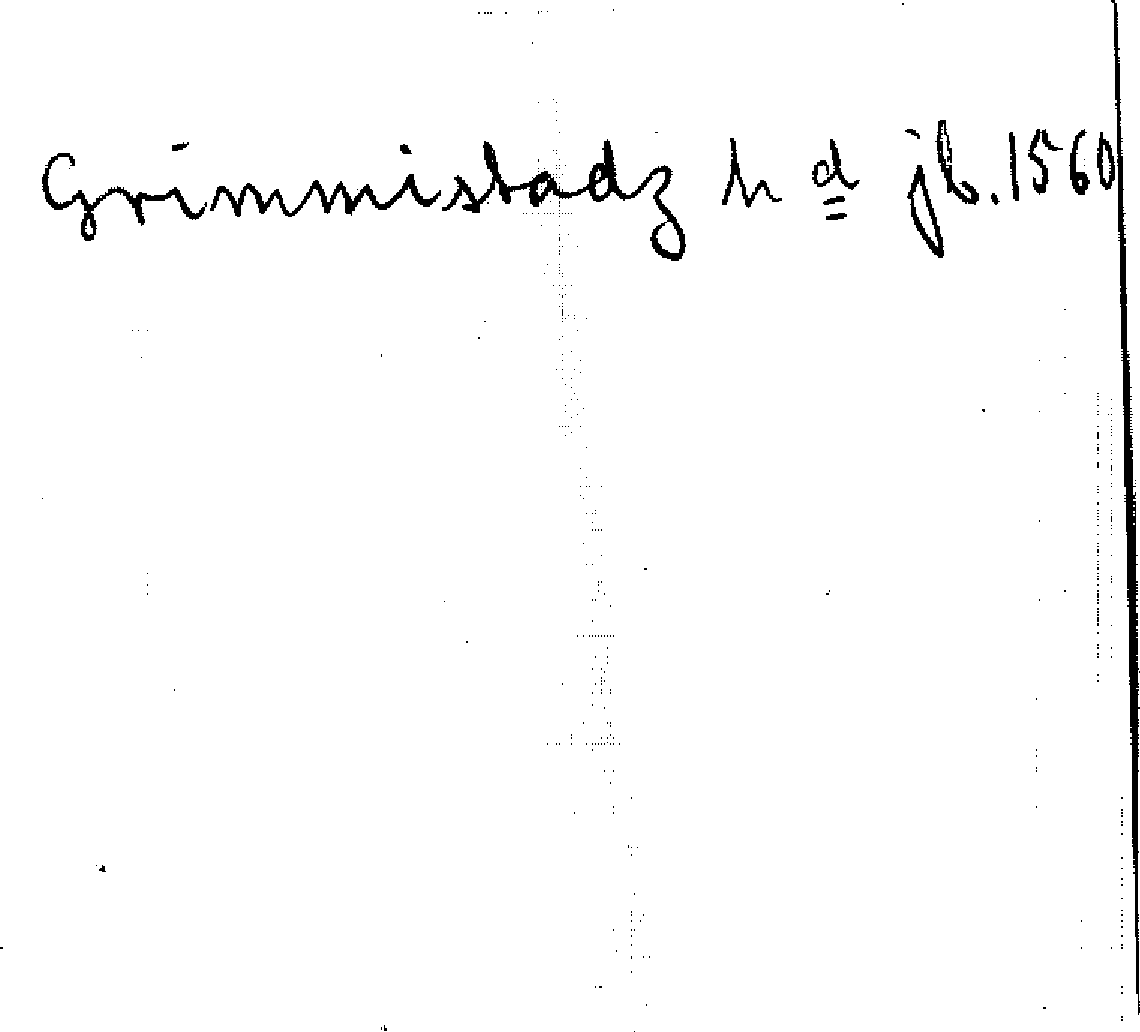 Grimmistadz h d jb. 1560